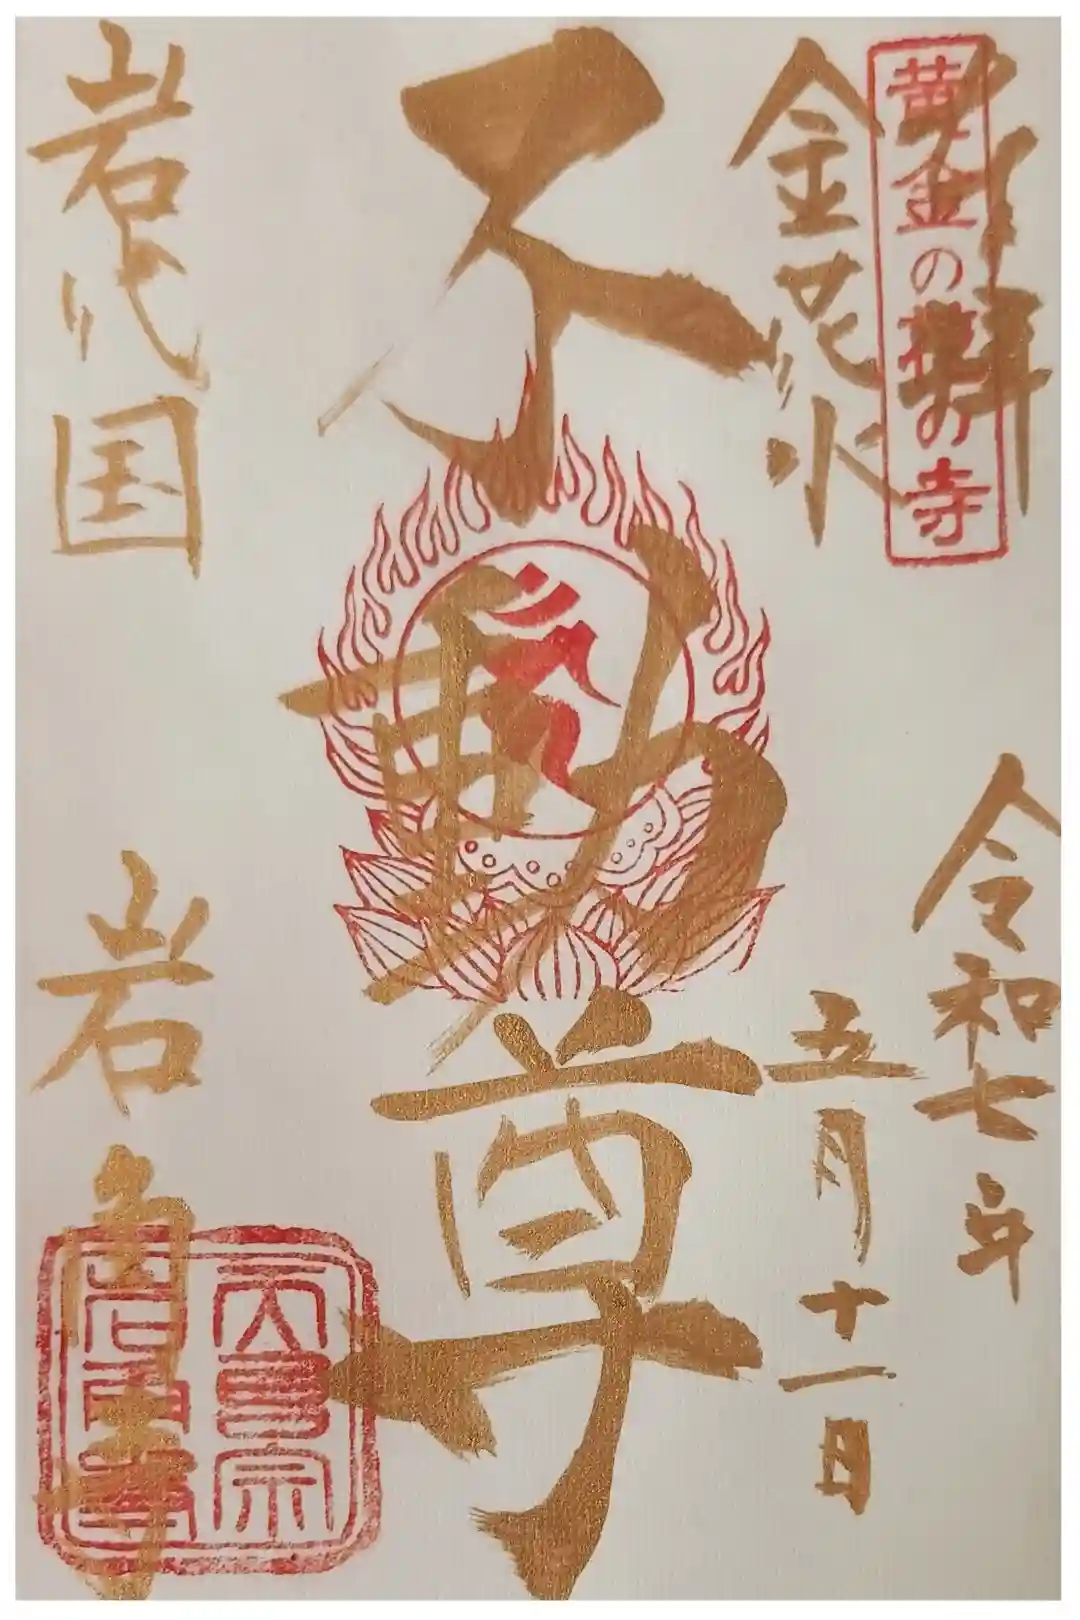 奉拝
黄金の の寺
令和七年
金花水
五月十一日
不動尊
岩代国
岩角寺
天台宗
岩角寺